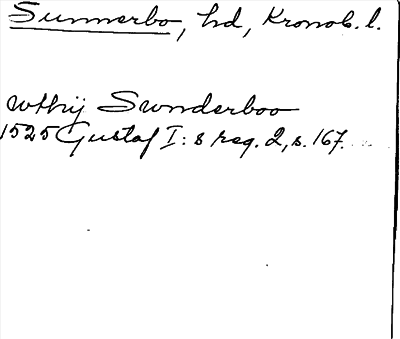 Sunnerbo, hd, Kronob. l.
wthij Swnderboo
1525 Gustaf I:s reg. 2, s. 167.